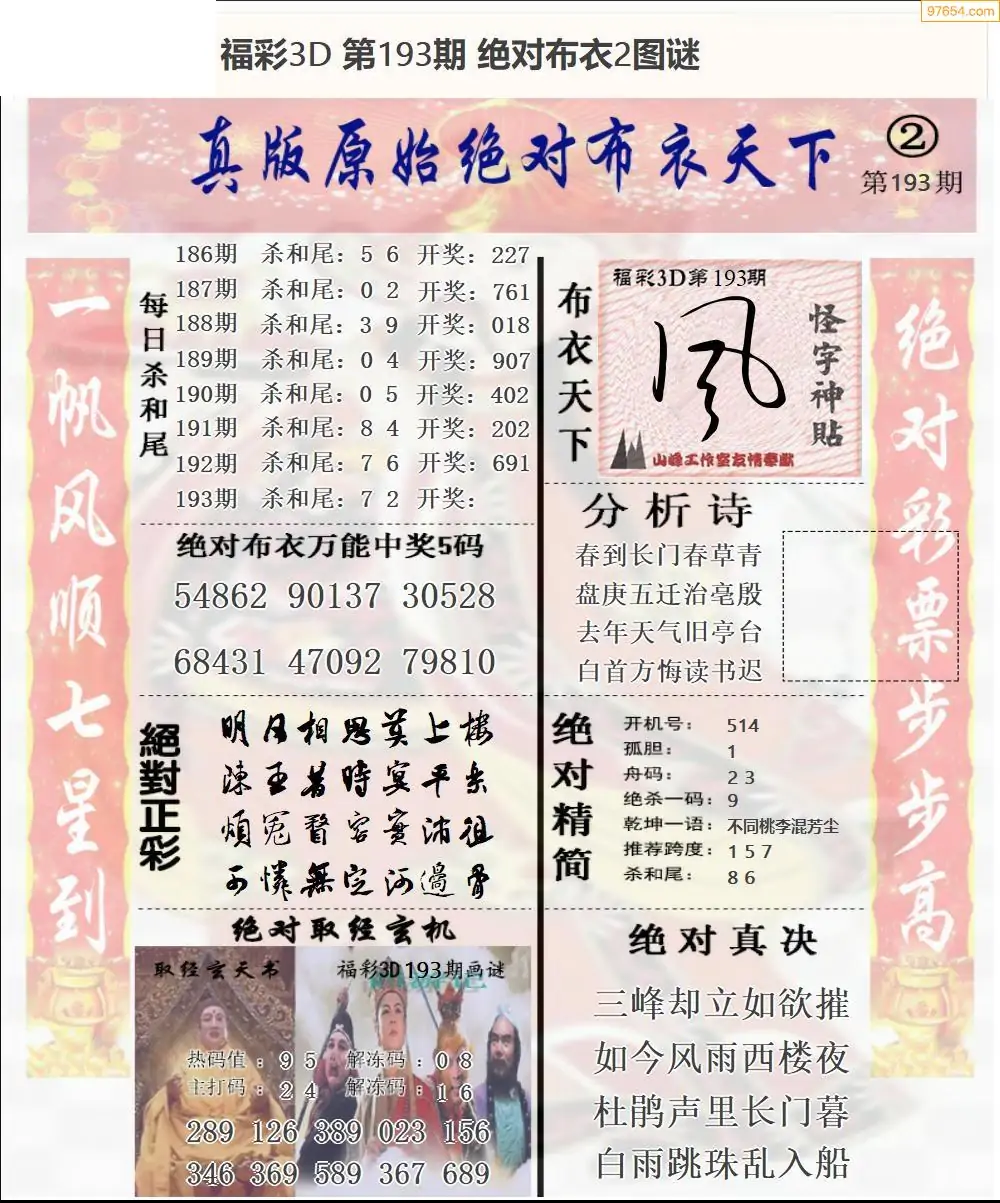 97654.com
福彩3D 第193期 绝对布衣2图谜
真版原始绝对布衣天下
②
第193期
一帆风顺七星到
每日杀和尾
186期 杀和尾：5 6 开奖：227
187期 杀和尾：0 2 开奖：761
188期 杀和尾：3 9 开奖：018
189期 杀和尾：0 4 开奖：907
190期 杀和尾：0 5 开奖：402
191期 杀和尾：8 4 开奖：202
192期 杀和尾：7 6 开奖：691
193期 杀和尾：7 2 开奖：
布衣天下
福彩3D第193期
怪字神貼
山峰工作室友情奉献
绝对彩票步步高
绝对布衣万能中奖5码
54862 90137 30528
68431 47092 79810
分析诗
春到长门春草青
盘庚五迁治亳殷
去年天气旧亭台
白首方悔读书迟
絕對正彩
明月相思莫上楼
陳王昔時宴平乐
煩冤瞀容實沛徂
可憐無定河邊骨
绝对精简
开机号： 514
孤胆： 1
舟码： 2 3
绝杀一码：9
乾坤一语：不同桃李混芳尘
推荐跨度：1 5 7
杀和尾： 8 6
绝对取经玄机
取经玄天书
福彩3D193期画谜
热码值：9 5 解冻码：0 8
主打码：2 4 解冻码：1 6
289 126 389 023 156
346 369 589 367 689
绝对真决
三峰却立如欲摧
如今风雨西楼夜
杜鹃声里长门暮
白雨跳珠乱入船